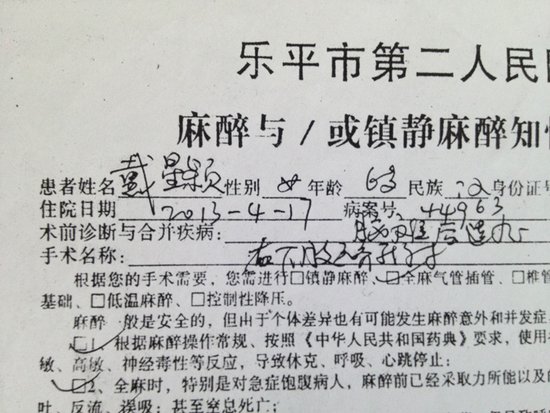 乐平市第二人民
麻醉与/或镇静麻醉知
患者姓名 戴星颖 性别 女 年龄 6岁 民族 汉 身份证号
住院日期 2013-4-17 病案号: 44963
术前诊断与合并疾病: 脑
手术名称: 右下肢 术
根据您的手术需要,您需进行□镇静麻醉、□全麻气管插管、□椎管
基础、□低温麻醉、□控制性降压。
麻醉一般是安全的,但由于个体差异也有可能发生麻醉意外和并发症
□1、根据麻醉操作常规、按照《中华人民共和国药典》要求,使用
敏、高敏、神经毒性等反应,导致休克、呼吸、心跳停止;
□2、全麻时,特别是对急症饱腹病人,麻醉前已经采取力所能及以
吐、反流、误吸;甚至窒息死亡;